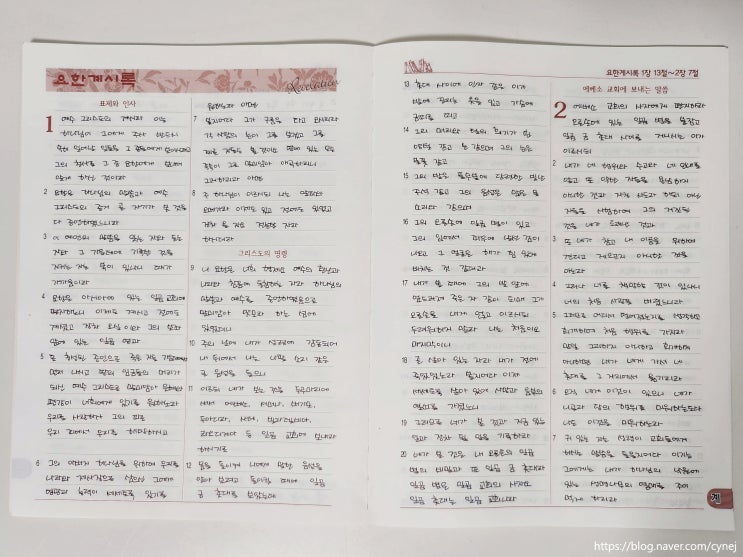 요한계시록
Revelation
표제와 인사
1 예수 그리스도의 계시라 이는
하나님이 그에게 주사 반드시
속히 일어날 일들을 그 종들에게 보이시려고
그의 천사를 그 종 요한에게 보내어
알게 하신 것이라
2 요한은 하나님의 말씀과 예수
그리스도의 증거 곧 자기가 본 것을
다 증언하였느니라
3 이 예언의 말씀을 읽는 자와 듣는
자와 그 가운데에 기록한 것을
지키는 자는 복이 있나니 때가
가까움이라
4 요한은 아시아에 있는 일곱 교회에
편지하노니 이제도 계시고 전에도
계셨고 장차 오실 이와 그의 보좌
앞에 있는 일곱 영과
5 또 충성된 증인으로 죽은 자들 가운데에서
먼저 나시고 땅의 임금들의 머리가
되신 예수 그리스도로 말미암아 은혜와
평강이 너희에게 있기를 원하노라
우리를 사랑하사 그의 피로
우리 죄에서 우리를 해방하시고
6 그의 아버지 하나님을 위하여 우리를
나라와 제사장으로 삼으신 그에게
영광과 능력이 세세토록 있기를
원하노라 아멘
7 볼지어다 그가 구름을 타고 오시리라
각 사람의 눈이 그를 보겠고 그를
찌른 자들도 볼 것이요 땅에 있는 모든
족속이 그로 말미암아 애곡하리니
그러하리라 아멘
8 주 하나님이 이르시되 나는 알파와
오메가라 이제도 있고 전에도 있었고
장차 올 자요 전능한 자라
하시더라
그리스도의 명령
9 나 요한은 너희 형제요 예수의 환난과
나라와 참음에 동참하는 자라 하나님의
말씀과 예수를 증언하였음으로
말미암아 밧모라 하는 섬에
있었더니
10 주의 날에 내가 성령에 감동되어
내 뒤에서 나는 나팔 소리 같은
큰 음성을 들으니
11 이르되 네가 보는 것을 두루마리에
써서 에베소, 서머나, 버가모,
두아디라, 사데, 빌라델비아,
라오디게아 등 일곱 교회에 보내라
하시기로
12 몸을 돌이켜 나에게 말한 음성을
알아 보려고 돌이킬 때에 일곱
금 촛대를 보았는데
요한계시록 1장 13절~2장 7절
13 촛대 사이에 인자 같은 이가
발에 끌리는 옷을 입고 가슴에
금띠를 띠고
14 그의 머리와 털의 희기가 흰
양털 같고 눈 같으며 그의 눈은
불꽃 같고
15 그의 발은 풀무불에 단련한 빛난
주석 같고 그의 음성은 많은 물
소리와 같으며
16 그의 오른손에 일곱 별이 있고
그의 입에서 좌우에 날선 검이
나오고 그 얼굴은 해가 힘 있게
비치는 것 같더라
17 내가 볼 때에 그의 발 앞에
엎드러져 죽은 자 같이 되매 그가
오른손을 내게 얹고 이르시되
두려워하지 말라 나는 처음이요
마지막이니
18 곧 살아 있는 자라 내가 전에
죽었었노라 볼지어다 이제
세세토록 살아 있어 사망과 음부의
열쇠를 가졌노니
19 그러므로 네가 본 것과 지금 있는
일과 장차 될 일을 기록하라
20 네가 본 것은 내 오른손의 일곱
별의 비밀과 또 일곱 금 촛대라
일곱 별은 일곱 교회의 사자요
일곱 촛대는 일곱 교회니라
에베소 교회에 보내는 말씀
2 에베소 교회의 사자에게 편지하라
오른손에 있는 일곱 별을 붙잡고
일곱 금 촛대 사이를 거니시는 이가
이르시되
2 내가 네 행위와 수고와 네 인내를
알고 또 악한 자들을 용납하지
아니한 것과 자칭 사도라 하되 아닌
자들을 시험하여 그의 거짓된
것을 네가 드러낸 것과
3 또 네가 참고 내 이름을 위하여
견디고 게으르지 아니한 것을
아노라
4 그러나 너를 책망할 것이 있나니
너의 처음 사랑을 버렸느니라
5 그러므로 어디서 떨어졌는지를 생각하고
회개하여 처음 행위를 가지라
만일 그리하지 아니하고 회개하지
아니하면 내가 네게 가서 네
촛대를 그 자리에서 옮기리라
6 오직 네게 이것이 있으니 네가
니골라 당의 행위를 미워하는도다
나도 이것을 미워하노라
7 귀 있는 자는 성령이 교회들에게
하시는 말씀을 들을지어다 이기는
그에게는 내가 하나님의 낙원에
있는 생명나무의 열매를 주어
먹게 하리라
계
https://blog.naver.com/cynej